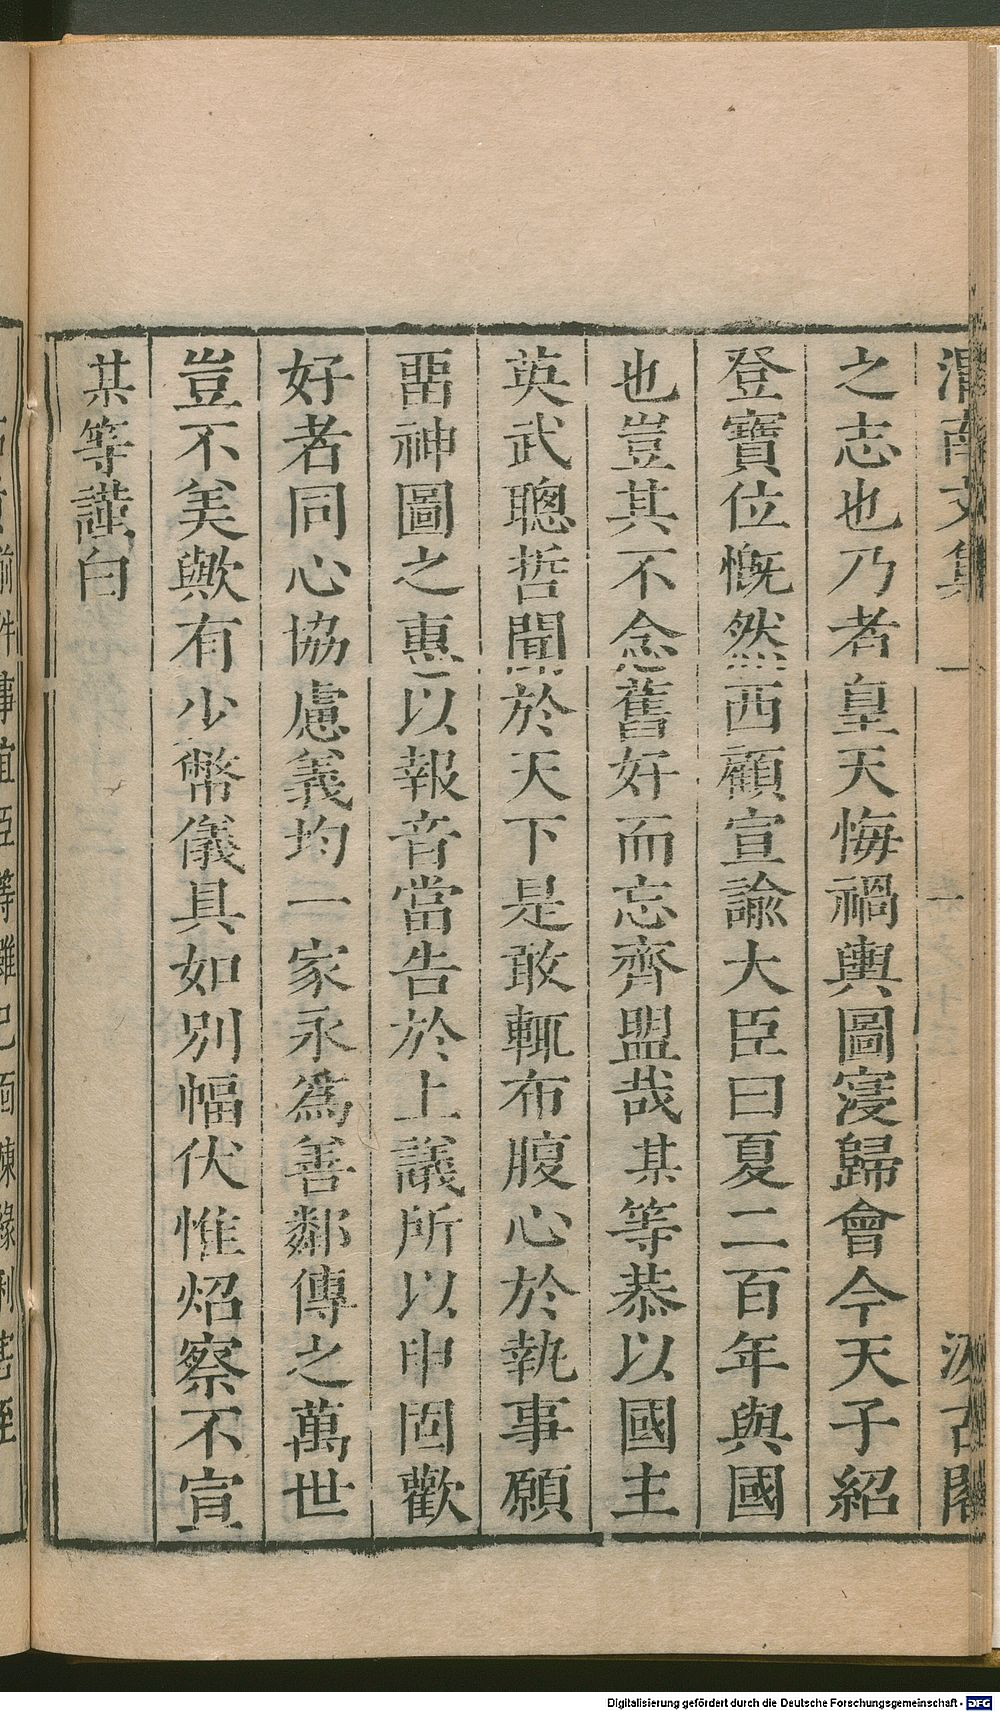 渭南文集 一 汲古閣
之志也乃者皇天悔禍輿圖寖歸會今天子紹
登寶位慨然西顧宣諭大臣曰夏二百年與國
也豈其不念舊好而忘齊盟哉某等恭以國主
英武聰哲聞於天下是敢輒布腹心於執事願
畱神圖之惠以報音當告於上議所以申固歡
好者同心協慮義均一家永為善鄰傳之萬世
豈不美歟有少幣儀具如別幅伏惟炤察不宣
某等謹白
Digitalisierung gefördert durch die Deutsche Forschungsgemeinschaft - DFG